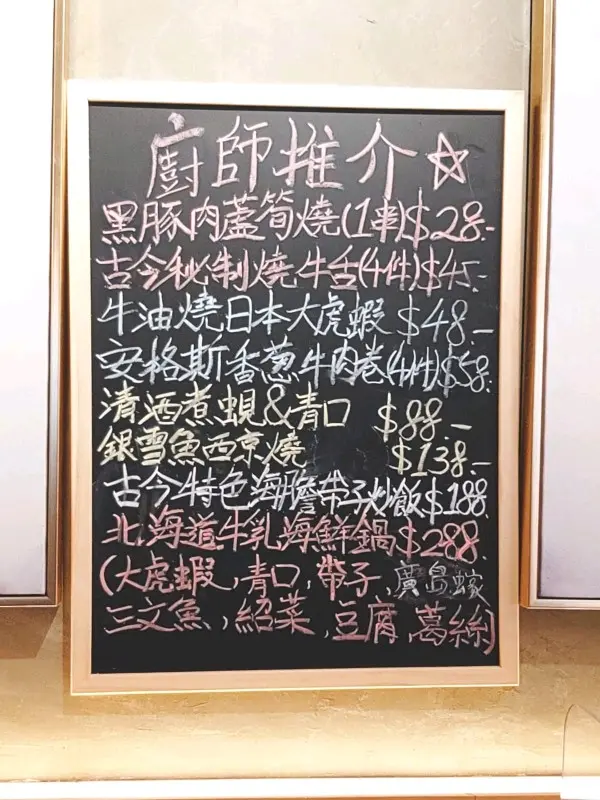 廚師推介☆
黑豚肉蘆筍燒(1串)$28.-
古今秘制燒牛舌(4件)$45-
牛油燒日本大虎蝦 $48.-
安格斯香葱牛肉卷(4件)$58.
清酒煮蜆&青口 $88.-
銀雪魚西京燒 $138.-
古今特色海膽帶子炒飯$188.
北海道牛乳海鮮鍋$288.
(大虎蝦,青口,帶子,廣島蠔
三文魚,紹菜,豆腐 葛絲)